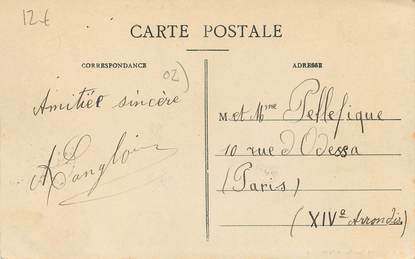 12€
CARTE POSTALE
CORRESPONDANCE
ADRESSE
02)
Amitié sincère
A Langlois
M et Mme Pellefique
10 rue d'Odessa
(Paris)
(XIVe Arrondis)